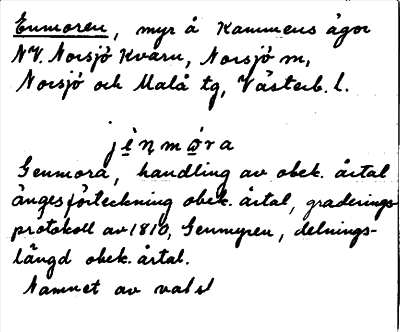 Enmoren, myr å Kammens ägor
NV. Norsjö Kvarn, Norsjö m,
Norsjö och Malå tg, Västerb. l.
jènmơra
Genmora, handling av obek. årtal
ängesförteckning obek. årtal, graderings-
protokoll av 1810, Genmyren, delnings-
längd obek. årtal.
Namnet av vatsl